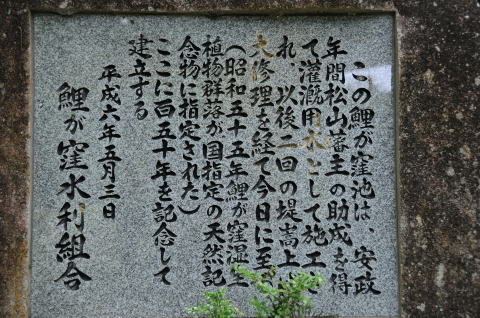 この鯉が窪池は、安政
年間松山藩主の助成を得
て灌漑用水として施工さ
れ、以後二回の堤嵩上
大修理を経て今日に至
(昭和五十五年鯉が窪湿生
植物群落が国指定の天然記
念物に指定された)
ここに百五十年を記念して
建立する
平成六年五月三日
鯉が窪水利組合